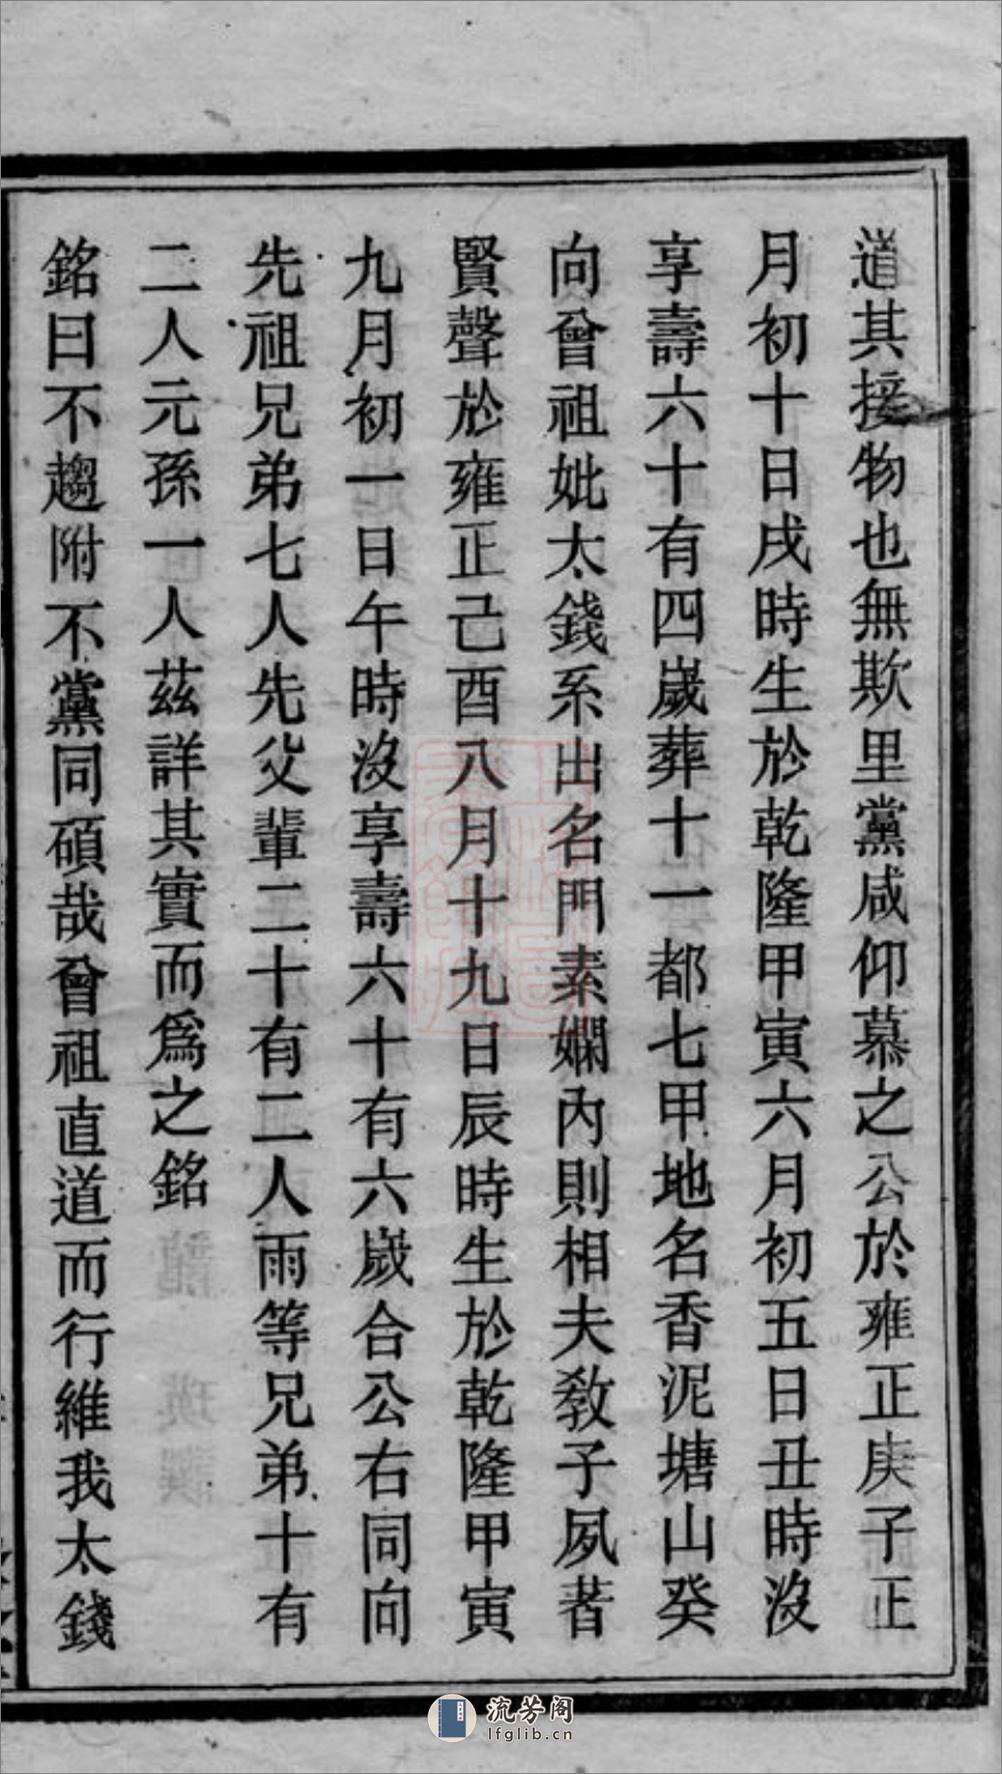 道其接物也無欺里黨咸仰慕之公於雍正庚子正
月初十日戌時生於乾隆甲寅六月初五日丑時沒
享壽六十有四嵗葬十一都七甲地名香泥塘山癸
向曾祖妣太錢系出名門素嫻內則相夫敎子夙著
賢聲於雍正己酉八月十九日辰時生於乾隆甲寅
九月初一日午時沒享壽六十有六嵗合公右同向
先祖兄弟七人先父輩二十有二人雨等兄弟十有
二人元孫一人茲詳其實而爲之銘
銘曰不趨附不黨同碩哉曾祖直道而行維我太錢
流芳阁
lfglib.cn